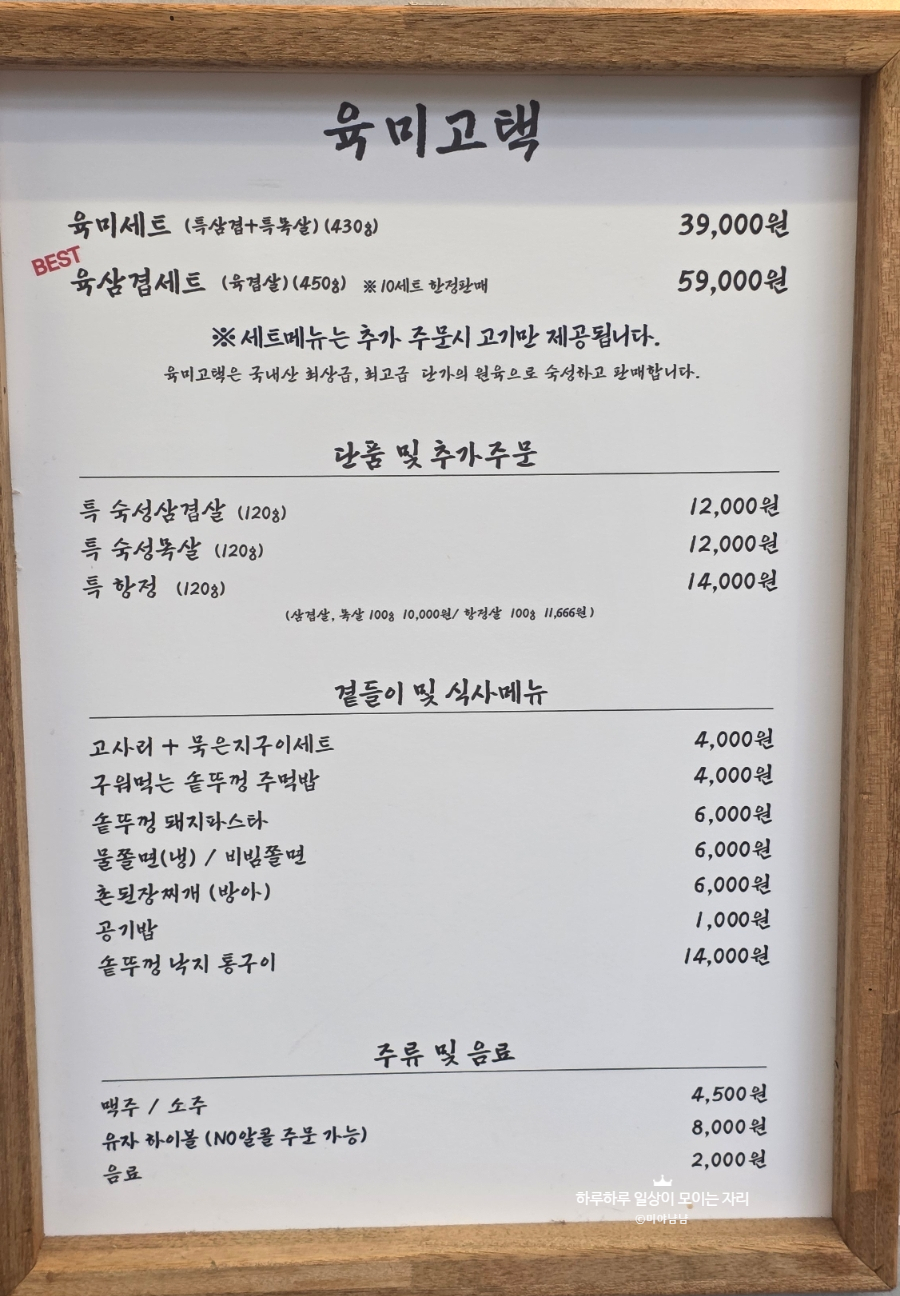 육미고택
육미세트 (특삼겹+특목살)(430g) 39,000원
BEST
육삼겹세트 (육겹살)(450g) ※10세트 한정판매 59,000원
※세트메뉴는 추가 주문시 고기만 제공됩니다.
육미고택은 국내산 최상급, 최고급 단가의 원육으로 숙성하고 판매합니다.
단품 및 추가주문
특 숙성삼겹살 (120g) 12,000원
특 숙성목살 (120g) 12,000원
특 항정 (120g) 14,000원
(삼겹살, 목살 100g 10,000원/ 항정살 100g 11,666원)
곁들이 및 식사메뉴
고사리 + 묵은지구이세트 4,000원
구워먹는 솥뚜껑 주먹밥 4,000원
솥뚜껑 돼지파스타 6,000원
물쫄면(냉) / 비빔쫄면 6,000원
촌된장찌개 (방아) 6,000원
공기밥 1,000원
솥뚜껑 낙지 통구이 14,000원
주류 및 음료
맥주 / 소주 4,500원
유자 하이볼 (NO알콜 주문 가능) 8,000원
음료 2,000원
하루하루 일상이 모이는 자리